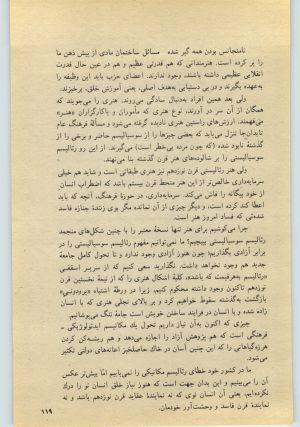 نامتجانس بودن همه گیر شده مسائل ساختمان مادی از پیش ذهن ما
را پر کرده است. هنرمندانی که هم قدرتی عظیم و هم در عین حال قدرت
انقلابی عظیمی داشته باشند، وجود ندارند. اعضای حزب باید این وظیفه را
به‌عهده بگیرند و در پی دستیابی به‌هدف اصلی، یعنی آموزش خلق، برخیزند.
ولی بعد همین افراد به‌دنبال سادگی می‌روند. هنری را می‌جویند که
همگان از آن سر در آورند، نوع هنری که مأموران و باکارگزاران «هنر»
می‌فهمند. ارزش‌های راستین هنری نادیده گرفته می‌شود و مسألهٔ فرهنگ عام
تابدان‌جا تنزل می‌یابد که بعضی چیزها را از سوسیالیسم حاضر و برخی را از
گذشتهٔ نابود شده (که چون مرده بی‌خطر است) می‌گیرند. از این رو رئالیسم
سوسیالیستی را بر شالوده‌های هنر قرن گذشته بنا می‌نهند.
ولی هنر رئالیستی قرن نوزدهم نیز هنری طبقاتی است و شاید هم خیلی
سرمایه‌داری خالص‌تر از این هنر منحط قرن بیستم باشد که اضطراب انسان
از خود بیگانه را فاش می‌کند. سرمایه‌داری، در حوزهٔ فرهنگ، آنچه که باید
اعطا کند کرده است، و دیگر چیزی از آن نمانده مگر بوی زنندهٔ جنازه فاسد
شده‌ئی که فساد امروز هنر است.
چرا می‌کوشیم برای هنر تنها نسخهٔ معتبر را با چنین شکل‌های منجمد
رئالیسم سوسیالیستی بپیچیم؟ ما نمی‌توانیم مفهوم رئالیسم سوسیالیستی را در
برابر آزادی بگذاریم؛ چون هنوز آزادی وجود ندارد و تا تحول کامل جامعهٔ
جدید هم وجود نخواهد داشت. بگذارید سعی کنیم که از سریر اسقفی
«رئالیسم به‌هرقیمت که باشد»، کلیهٔ اشکال هنری را که از نیمهٔ نخستین قرن
نوزدهم تاکنون وجود داشته محکوم کنیم، زیرا در ورطهٔ اشتباه «پرودونی»
بازگشت به‌گذشته سقوط خواهیم کرد و بر بالای تجلی هنری که با انسان
زاده شده و یا انسان در فرایند ساختن خویش است جامهٔ تنگ می‌پوشانیم.
چیزی که اکنون به‌آن نیاز داریم تحول یك مکانیسم ایدئولوژیکی ـ
فرهنگی است که هم پژوهش آزاد را اجازه می‌دهد و هم ریشه‌کن کردن
هرزه‌گیاهانی را که این چنین آسان در خاك حاصلخیز اعانه‌های دولتی تکثیر
می‌شود.
ما در کشور خود خطای رئالیسم مکانیکی را نمی‌یابیم اما پیش‌تر عکس
آن را می‌بینیم و این بدان جهت است که هنوز نیاز خلق انسان نو را درك
نکرده‌ایم، یعنی آن انسان نوی که نه نمایندهٔ عقاید قرن نوزدهم باشد و نه
نمایندهٔ قرن فاسد و وحشت‌آور خودمان.
۱۱۹